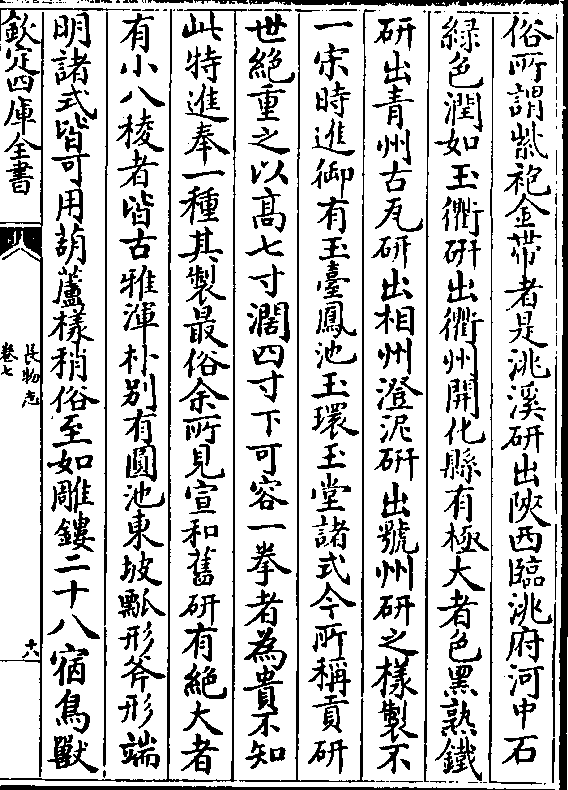 俗所謂紫袍金帶者是洮溪研出陝西臨洮府河中石
緑色潤如玉衢研出衢州開化縣有極大者色黑熟鐵
研出青州古瓦研出相州澄泥研出虢州研之樣製不
一宋時進御有玉臺鳳池玉環玉堂諸式今所稱貢研
世絶重之以髙七寸濶四寸下可容一拳者為貴不知
此特進奉一種其製最俗余所見宣和舊研有絶大者
有小八稜者皆古雅渾朴别有圓池東坡瓢形斧形端
明諸式皆可用葫蘆樣稍俗至如雕鏤二十八宿鳥獸
欽定四庫全書
長物志
卷七
六